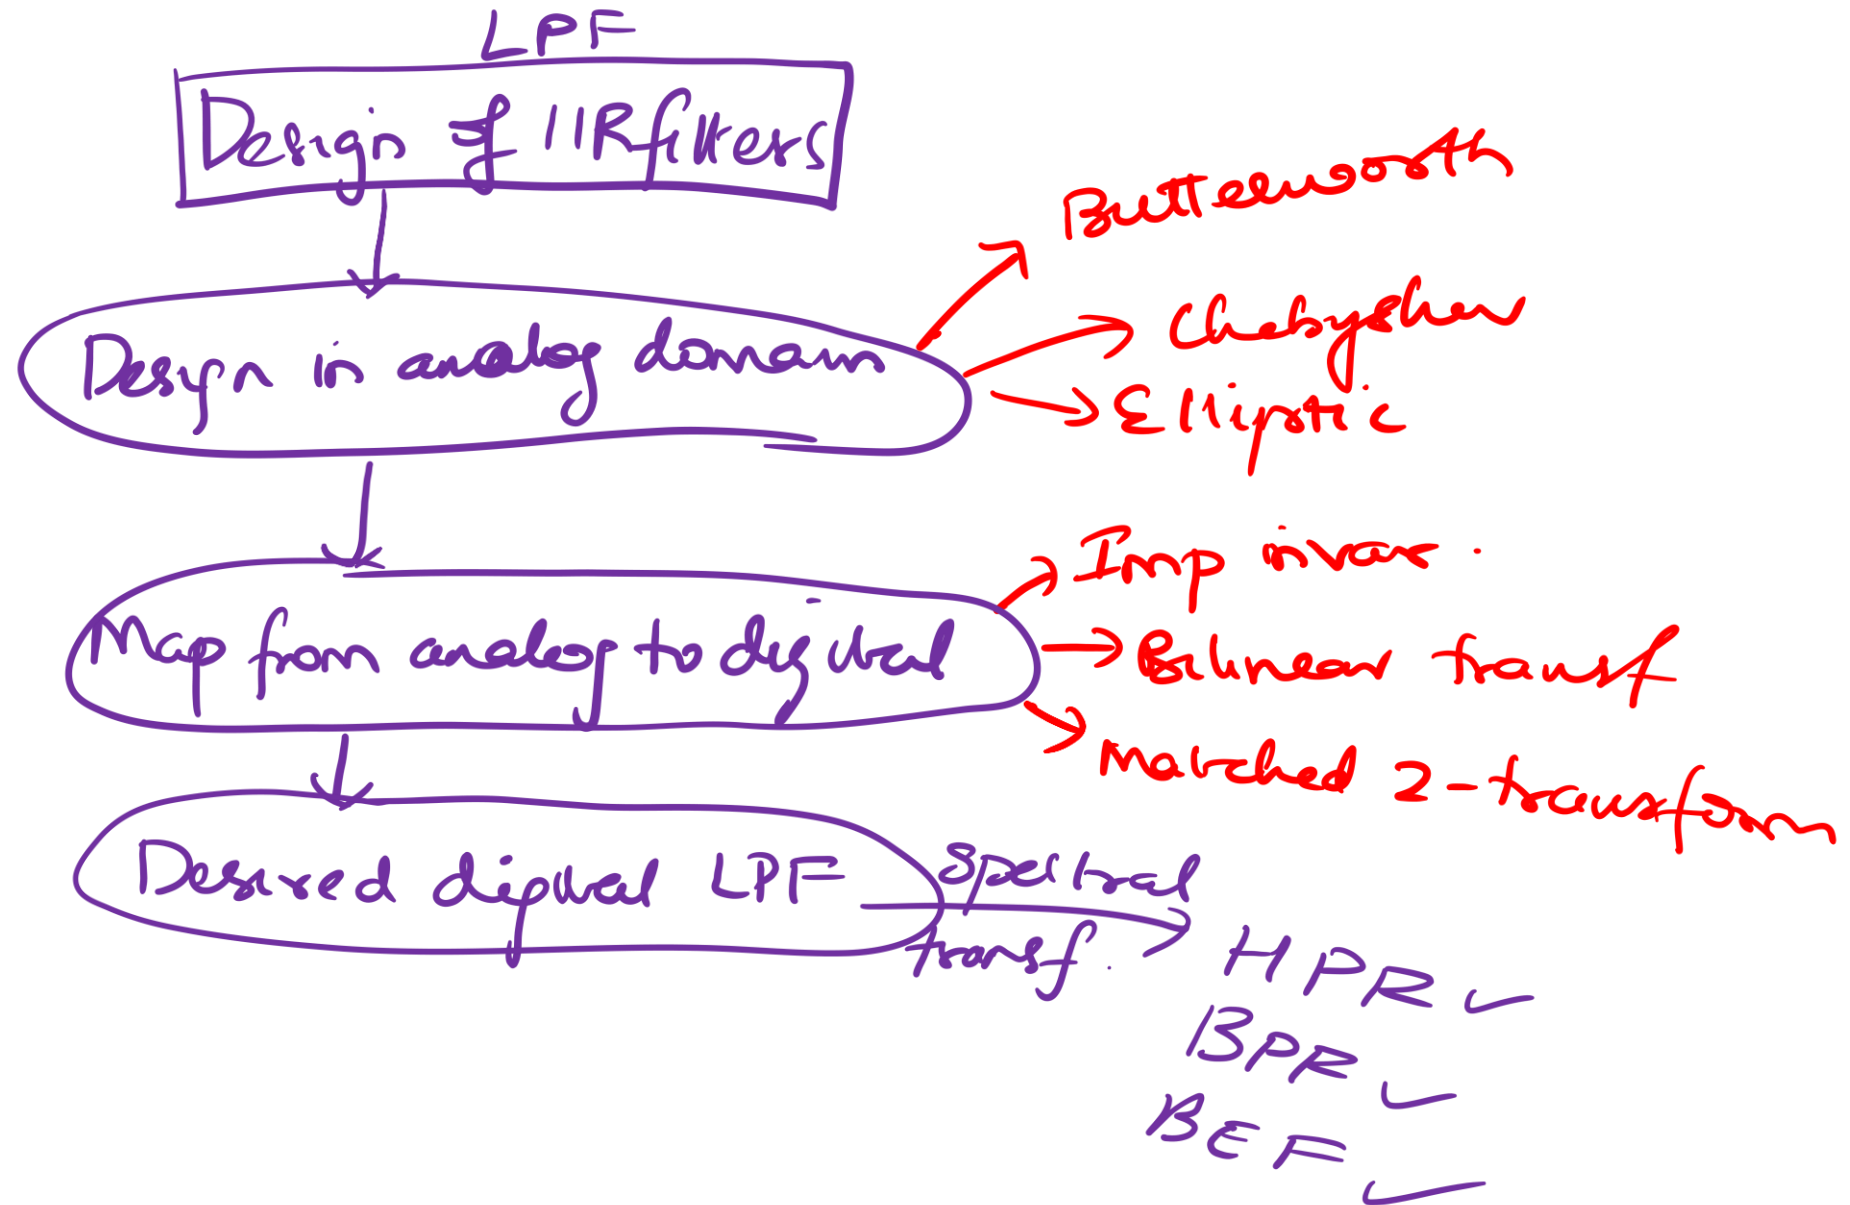 LPF
Design of IIR filters
Design in analog domain
Butterworth
Chebyshev
Elliptic
Map from analog to digital
Imp invar.
Bilinear transf
Matched Z-transform
Desired digital LPF
Spectral
transf.
HPF
BPF
BEF